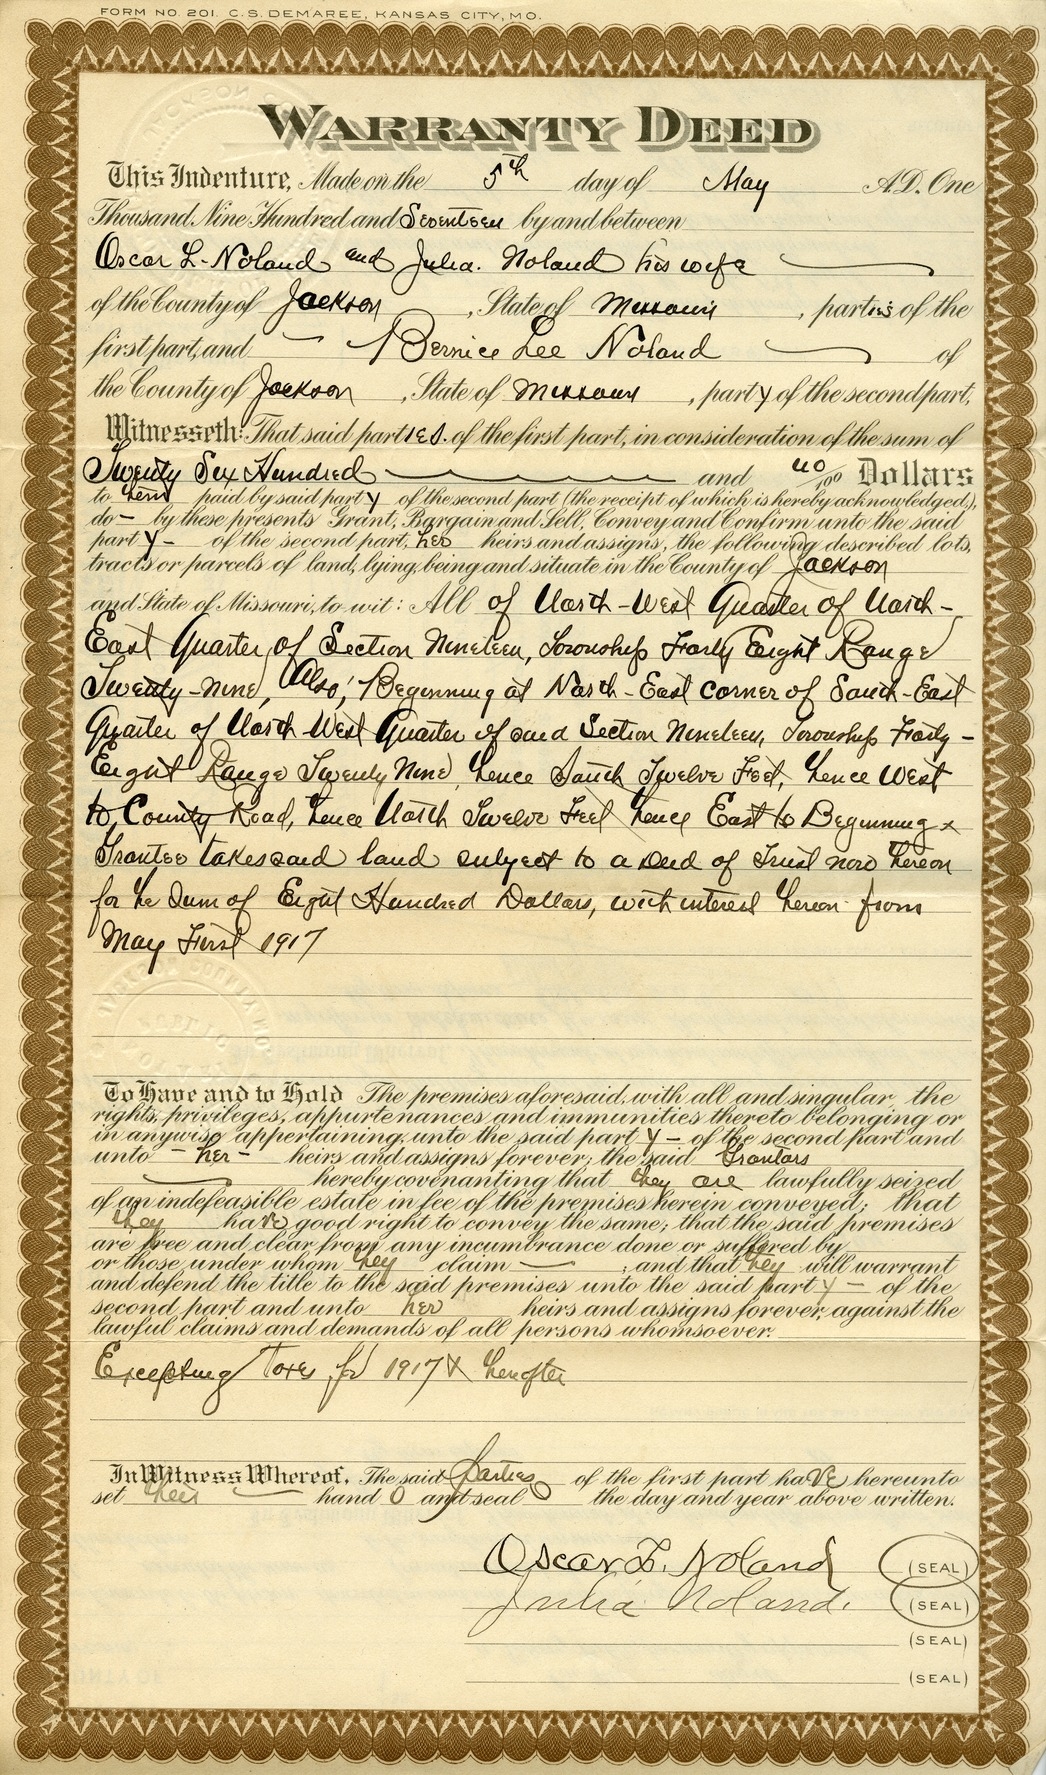 FORM NO. 201. C. S. DEMAREE, KANSAS CITY, MO.
WARRANTY DEED
This Indenture, Made on the 5th day of May A.D. One
Thousand Nine Hundred and Seventeen by and between
Oscar L. Noland and Julia. Noland his wife
of the County of Jackson, State of Missouri, parties of the
first part, and Bernice Lee Noland of
the County of Jackson, State of Missouri, party of the second part,
Witnesseth: That said parties. of the first part, in consideration of the sum of
Twenty Six Hundred and no/100 Dollars
to them paid by said party of the second part (the receipt of which is hereby acknowledged),
do - by these presents Grant, Bargain and Sell, Convey and Confirm unto the said
party - of the second part, her heirs and assigns, the following described lots,
tracts or parcels of land, lying, being and situate in the County of Jackson
and State of Missouri, to wit: All of North-West Quarter of North-
East Quarter, of Section Nineteen, Township Forty Eight Range
Twenty-nine, Also, Beginning at North-East corner of South-East
Quarter of North West Quarter of said Section Nineteen, Township Forty-
Eight Range Twenty Nine, thence South Twelve Feet, thence West
to County Road, thence North Twelve Feet thence East to Beginning x
Grantee takes said land subject to a Deed of Trust now thereon
for the Sum of Eight Hundred Dollars, with interest thereon from
May First 1917
To Have and to Hold The premises aforesaid, with all and singular, the
rights, privileges, appurtenances and immunities thereto belonging or
in anywise appertaining, unto the said party - of the second part and
unto - her - heirs and assigns forever; the said Grantors
hereby covenanting that they are lawfully seized
of an indefeasible estate in fee of the premises herein conveyed; that
they have good right to convey the same; that the said premises
are free and clear from any incumbrance done or suffered by
or those under whom they claim ; and that they will warrant
and defend the title to the said premises unto the said party - of the
second part and unto her heirs and assigns forever, against the
lawful claims and demands of all persons whomsoever.
Excepting Taxes for 1917 & thereafter
In Witness Whereof, The said parties of the first part have hereunto
set their hand and seal the day and year above written.
Oscar L. Noland (SEAL)
Julia Noland. (SEAL)
(SEAL)
(SEAL)